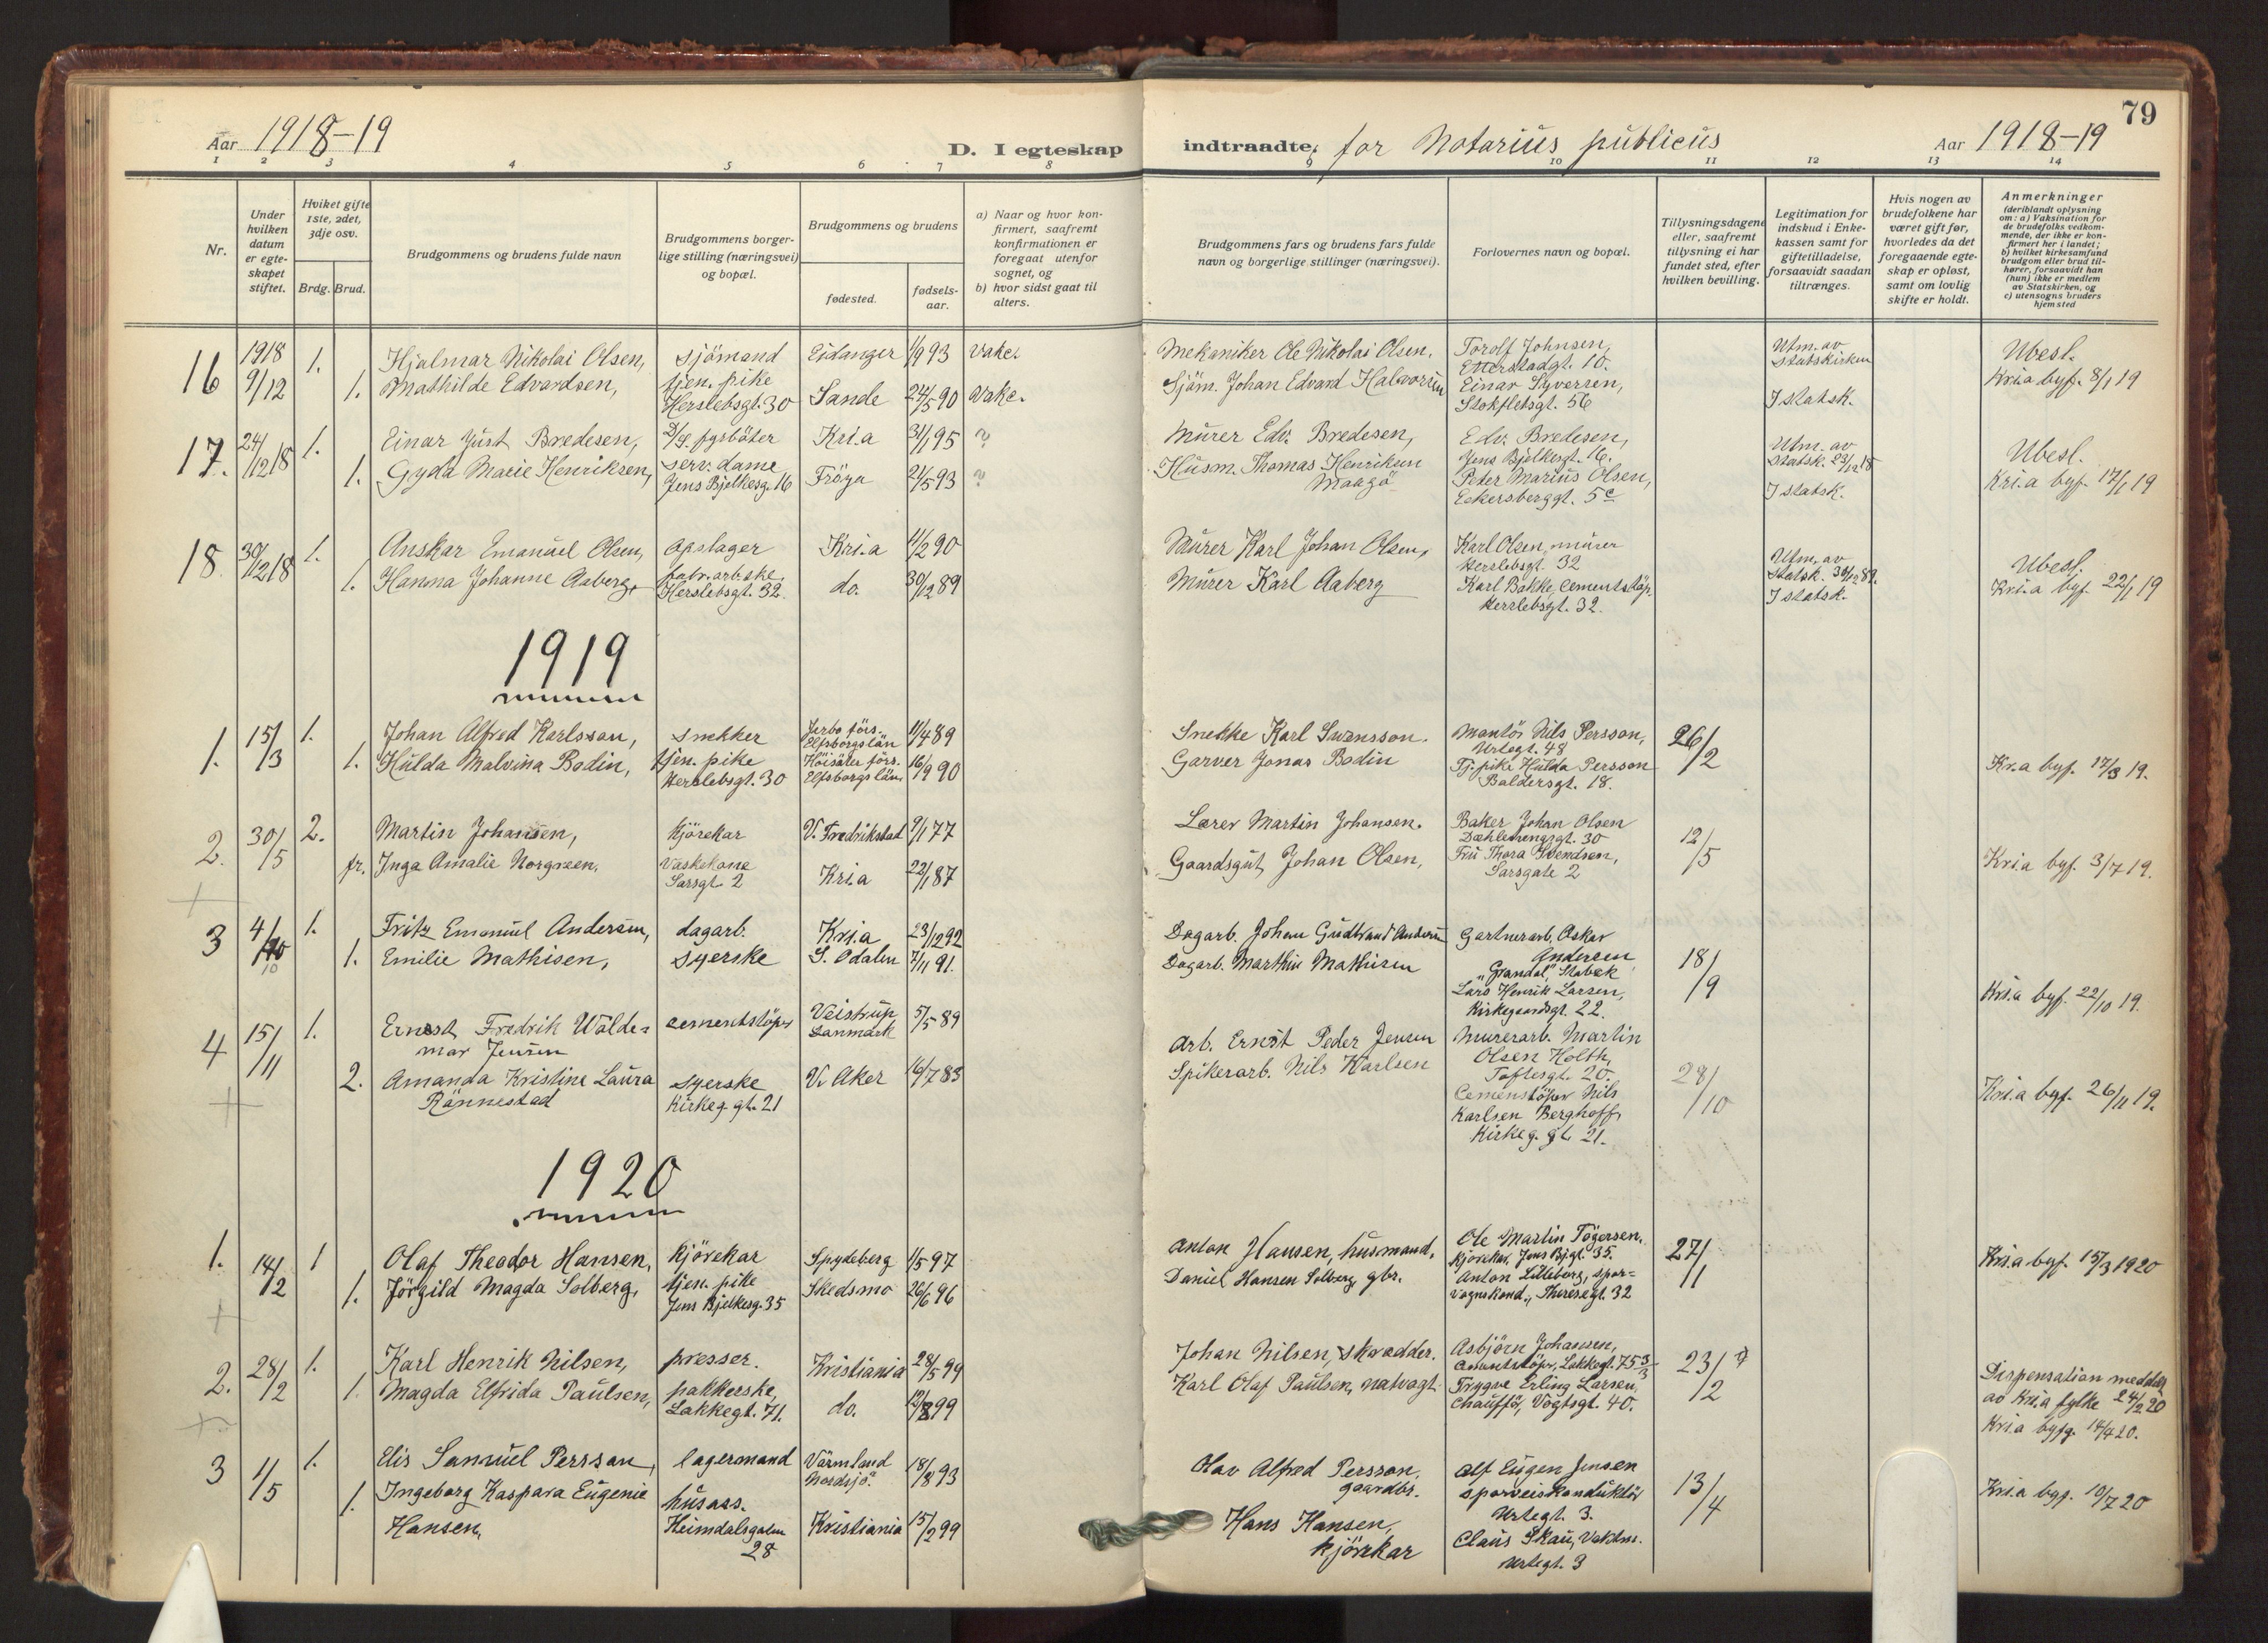 79
Aar 1918-19
D. I egteskap indtraadte, for Notarius publicus
Aar 1918-19
1 2 3 4 5 6 7 8 9 10 11 12 13 14
Nr.
Under hvilken datum er egteskapet stiftet.
Hviket gifte 1ste, 2det, 3dje osv.
Brdg. Brud.
Brudgommens og brudens fulde navn
Brudgommens borgerlige stilling (næringsvei) og bopæl.
Brudgommens og brudens
fødested.
fødselsaar.
a) Naar og hvor konfirmert, saafremt konfirmationen er foregaat utenfor sognet, og
b) hvor sidst gaat til alters.
Brudgommens fars og brudens fars fulde navn og borgerlige stillinger (næringsvei).
Forlovernes navn og bopæl.
Tillysningsdagene eller, saafremt tillysning ei har fundet sted, efter hvilken bevilling.
Legitimation for indskud i Enkekassen samt for giftetilladelse, forsaavidt saadan tiltrænges.
Hvis nogen av brudefolkene har været gift før, hvorledes da det foregaaende egteskap er opløst, samt om lovlig skifte er holdt.
Anmerkninger
(deriblandt oplysning om: a) Vaksination for de brudefolks vedkommende, der ikke er konfirmert her i landet; b) hvilket kirkesamfund brudgom eller brud tilhører, forsaavidt han (hun) ikke er medlem av Statskirken, og c) utensogns bruders hjemsted
16 1918 9/12 1. Hjalmar Nikolai Olsen, sjömand Eidanger 1/9 93 vake. Mekaniker Ole Nikolai Olsen. Torolf Johnsen, Etterstadgt. 10. Utm. av Statskirken Ubesl.
1. Mathilde Edvardsen, tjen. pike Herslebsgt. 30 Sande 24/5 90 vake. Sjöm. Johan Edvard Halvorsen Einar Syversen, Stokfletsgt. 56 I statsk. Kri.a byf. 8/1 19
17. 24/12 18 1. Einar Just Bredesen, fyrböter Kri.a 31/1 95 ? Murer Edv. Bredesen, Edv. Bredesen, Jens Bjelkesgt. 16. Utm. av statsk. 23/12 18 Ubesl.
1. Gyda Marie Henriksen, serv. dame Jens Bjelkesg. 16 Fröya 21/5 93 ? Husm. Thomas Henriksen Peter Marius Olsen, Eckersberggt. 5c I statsk. Kri.a byf. 17/1 19
18 30/12 18 1. Anskar Emanuel Olsen, opslager Kri.a 11/2 90 Murer Karl Johan Olsen, Karl Olsen, murer Herslebsgt. 32 Utm. av Statsk. Ubesl.
1. Hanna Johanne Aaberg, fabr. arb.ske. Herslebsgt. 32. do. 30/12 89 Murer Karl Aaberg Karl Bakke, Cementstöp. Herslebsgt. 32. I statsk. Kri.a byf. 22/1 19
1919
1. 15/3 1. Johan Alfred Karlsson, snekker Jerbo förs. Elfsborgslän 11/4 89 Snekke Karl Swensson. Montör Nils Persson, Urtegt. 48 26/2
1. Hulda Malvina Bodin, tjen. pike Herslebsgt. 30 förs. Elfsborgs län. 16/9 90 Garver Jonas Bodin Tj. pike Hulda Persson Baldersgt. 18. Kr.a byf. 17/3 19.
2. 30/5 2. Martin Johansen, kjörekar V. Fredrikstad 9/1 77 Lærer Martin Johansen. Baker Johan Olsen Dæhlenengsgt. 30 12/5
fr. Inga Amalie Norgreen. Vaskekone Sarsgt. 2 Kri.a 22/1 87 Gaardsgut Johan Olsen, Fru Thora Svendsen, Sarsgate 2 Kri.a byf. 3/7 19.
3 4/10 10 1. Fritz Emanuel Andersen, dagarb. Kri.a 23/12 92 Dagarb. Johan Gudbrand Andersen Gartnerarb. Oskar Andersen „Grandal“, Stabæk 18/9
1. Emilie Mathisen, syerske S. Odalen 7/11 91. Dagarb. Marthin Mathisen Lars Henrik Larsen, Kirkegaardsgt. 22. Kri.a byf. 22/10 19.
4 15/11 1. Ernest Fredrik Waldemar Jensen cementstöper Veistrup Danmark 5/5 89 Arb. Ernst Peder Jensen Murerarb. Martin Olsen Holth, Toftesgt. 20. 28/10
2. Amanda Kristine Laura Rännestad syerske Kirkeg. gt. 21 V. Aker 16/7 83 Spikerarb. Nils Karlsen Cemenstöper Nils Karlsen Berghoff, Kirkeg. gt. 21. Kri.a byf. 26/11 19.
1920
1. 14/2 1 Olaf Theodor Hansen, kjörekar Spydeberg 1/5 97 Anton Hansen, husmand. Ole Martin Tögersen. kjörekar, Jens Bj.gt. 35. 27/1 Kri.a byf. 15/3 1920
1. Jörgild Magda Solberg, tjen. pike Jens Bjelkesg. 35 Skedsmo 26/6 96 Daniel Hansen Solberg gbr. Anton Lilleberg, sporvognskond., Theresegt. 32
2. 28/2 1. Karl Henrik Nilsen, presser. Kristiania 28/5 99 Johan Nilsen, skrædder. Asbjörn Johansen, Cementstöper, Lakkegt. 75 23/2
1. Magda Elfrida Paulsen, pakkerske, Lakkegt. 71. do. 12/8 99 Karl Olaf Paulsen, natvagt. Trygve Erling Larsen, Chaufför, Vogtsgt. 40. Dispensation meddelt av Kri.a fylke 24/2 20 Kri.a byfg. 14/4 20.
3 1/5 1. Elis Samuel Persson, lagermand Värmland Nordsjö. 18/8 93 Olav Alfred Persson, gaardbr. Alf Eugen Jensen sporveiskonduktör Urtegt. 3. 13/4
1. Ingeborg Kaspara Eugenie Hansen, husass. Heimdalsgaten 28 Kristiania 15/2 99 Hans Hansen, kjörekar Claus Skau, Vaktm. Urtegt. 3 Kri.a byg. 10/7 20